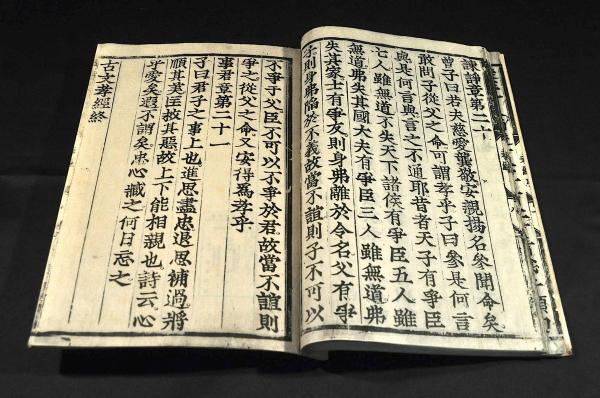 諫諍章第二十
曾子曰若夫慈愛龔敬安親揚名參聞命矣
敢問子從父之命可謂孝乎子曰參是何言
與是何言與言之不通耶昔者天子有爭臣
七人雖無道不失天下諸侯有爭臣五人雖
無道弗失其國大夫有爭臣三人雖無道弗
失其家士有爭友則身弗離於令名父有爭
子則身弗陷於不義故當不誼則子不可以
不爭于父臣不可以不爭於君故當不誼則
爭之從父之命又安得爲孝乎
事君章第二十一
子曰君子之事上也進思盡忠退思補過將
順其美匡救其惡故上下能相親也詩云心
乎愛矣遐不謂矣忠心藏之何日忘之
古文孝經終